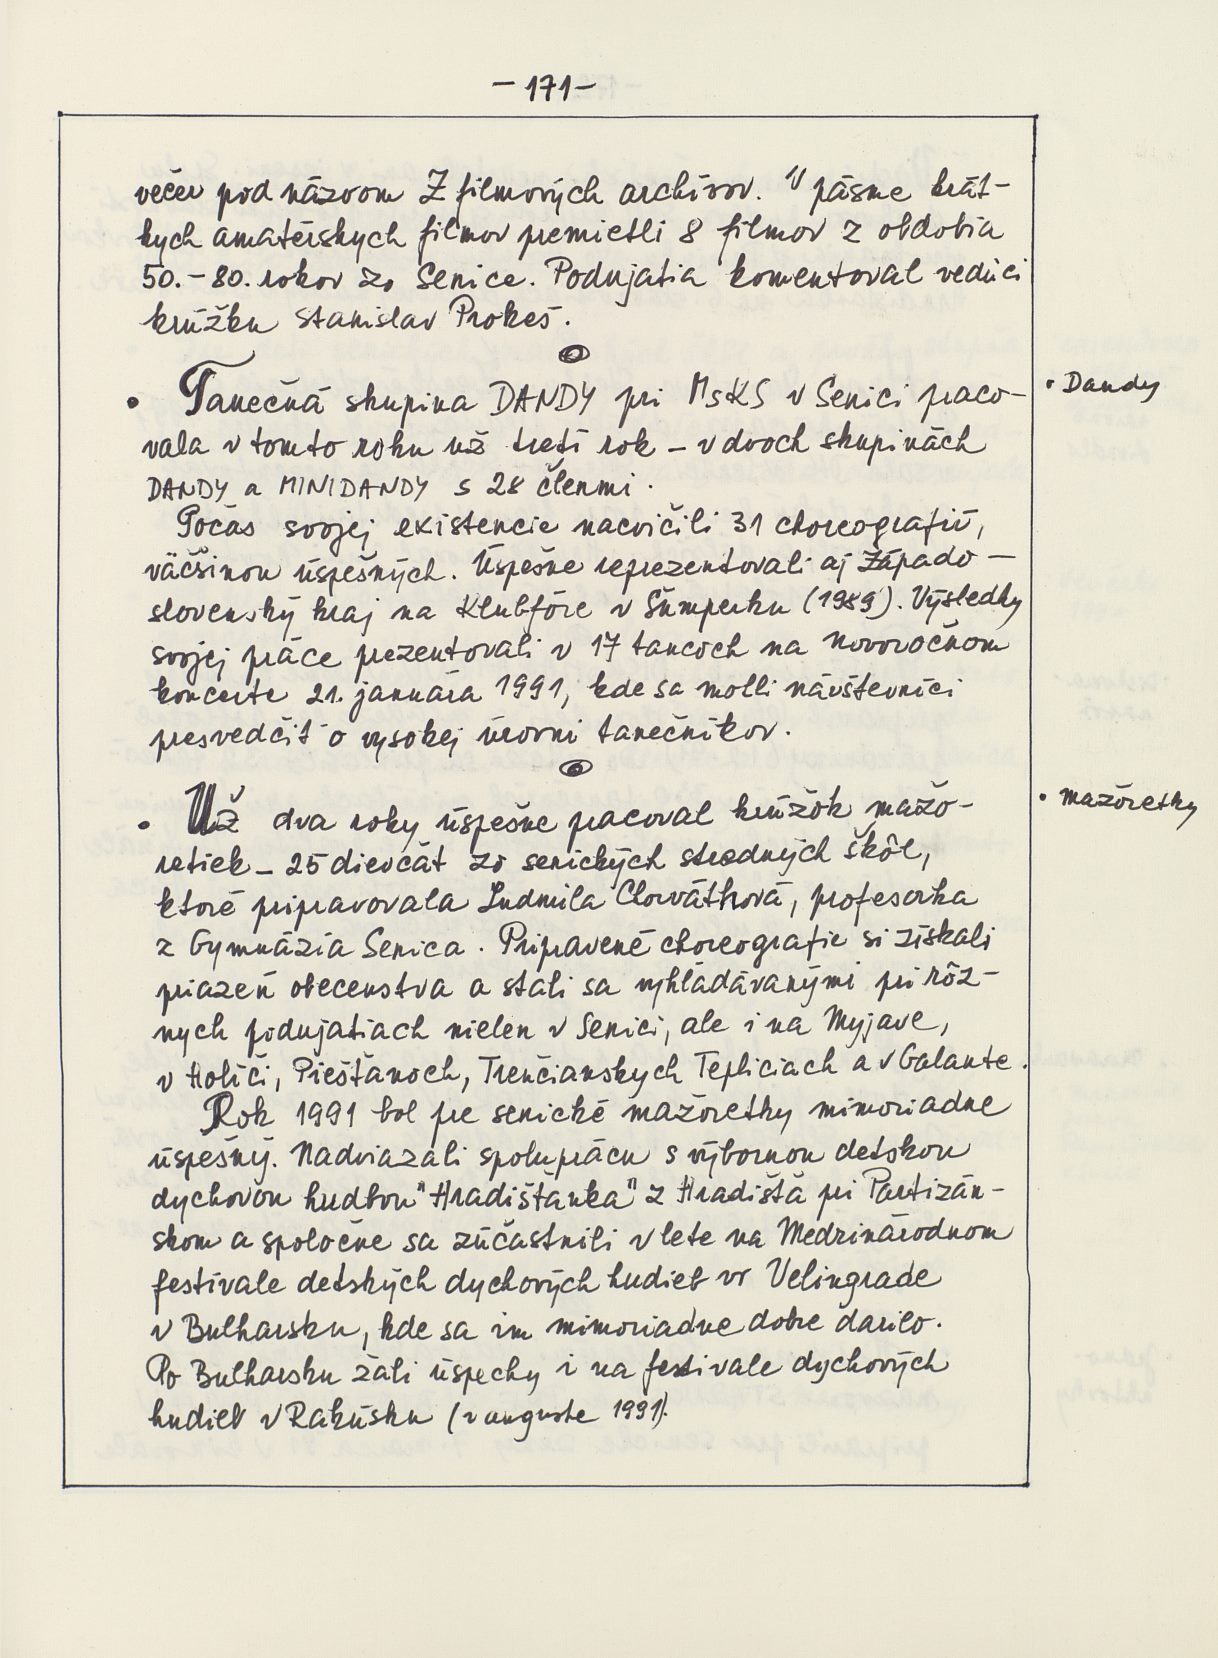 - 171 -
večer pod názvom Z filmových archívov. V pásme krát-
kych amatérskych filmov premietli 8 filmov z obdobia
50. - 80. rokov zo Senice. Podujatia komentoval vedúci
krúžku Stanislav Prokeš.
• Tanečná skupina DANDY pri MsKS v Senici praco-
• Dandy
vala v tomto roku už tretí rok - v dvoch skupinách
DANDY a MINIDANDY s 28 členmi.
Počas svojej existencie nacvičili 31 choreografií,
väčšinou úspešných. Úspešne reprezentovali aj Západo-
slovenský kraj na Klubfóre v Šumperku (1989). Výsledky
svojej práce prezentovali v 17 tancoch na Novoročnom
koncerte 21. januára 1991, kde sa mohli návštevníci
presvedčiť o vysokej úrovni tanečníkov.
• Už dva roky úspešne pracoval krúžok mažo-
• Mažoretky
retiek - 25 dievčat zo senických stredných škôl,
ktoré pripravovala Ľudmila Chorváthová, profesorka
z Gymnázia Senica. Pripravené choreografie si získali
priazeň obecenstva a stali sa vyhľadávanými pri rôz-
nych podujatiach nielen v Senici, ale i na Myjave,
v Holíči, Piešťanoch, Trenčianskych Tepliciach a v Galante.
Rok 1991 bol pre senické mažoretky mimoriadne
úspešný. Nadviazali spoluprácu s výbornou detskou
dychovou hudbou "Hradišťanka" z Hradišťa pri Partizán-
skom a spoločne sa zúčastnili v lete na Medzinárodnom
festivale detských dychových hudieb vo Velingrade
v Bulharsku, kde sa im mimoriadne dobre darilo.
Po Bulharsku žali úspechy i na festivale dychových
hudieb v Rakúsku (v auguste 1991).